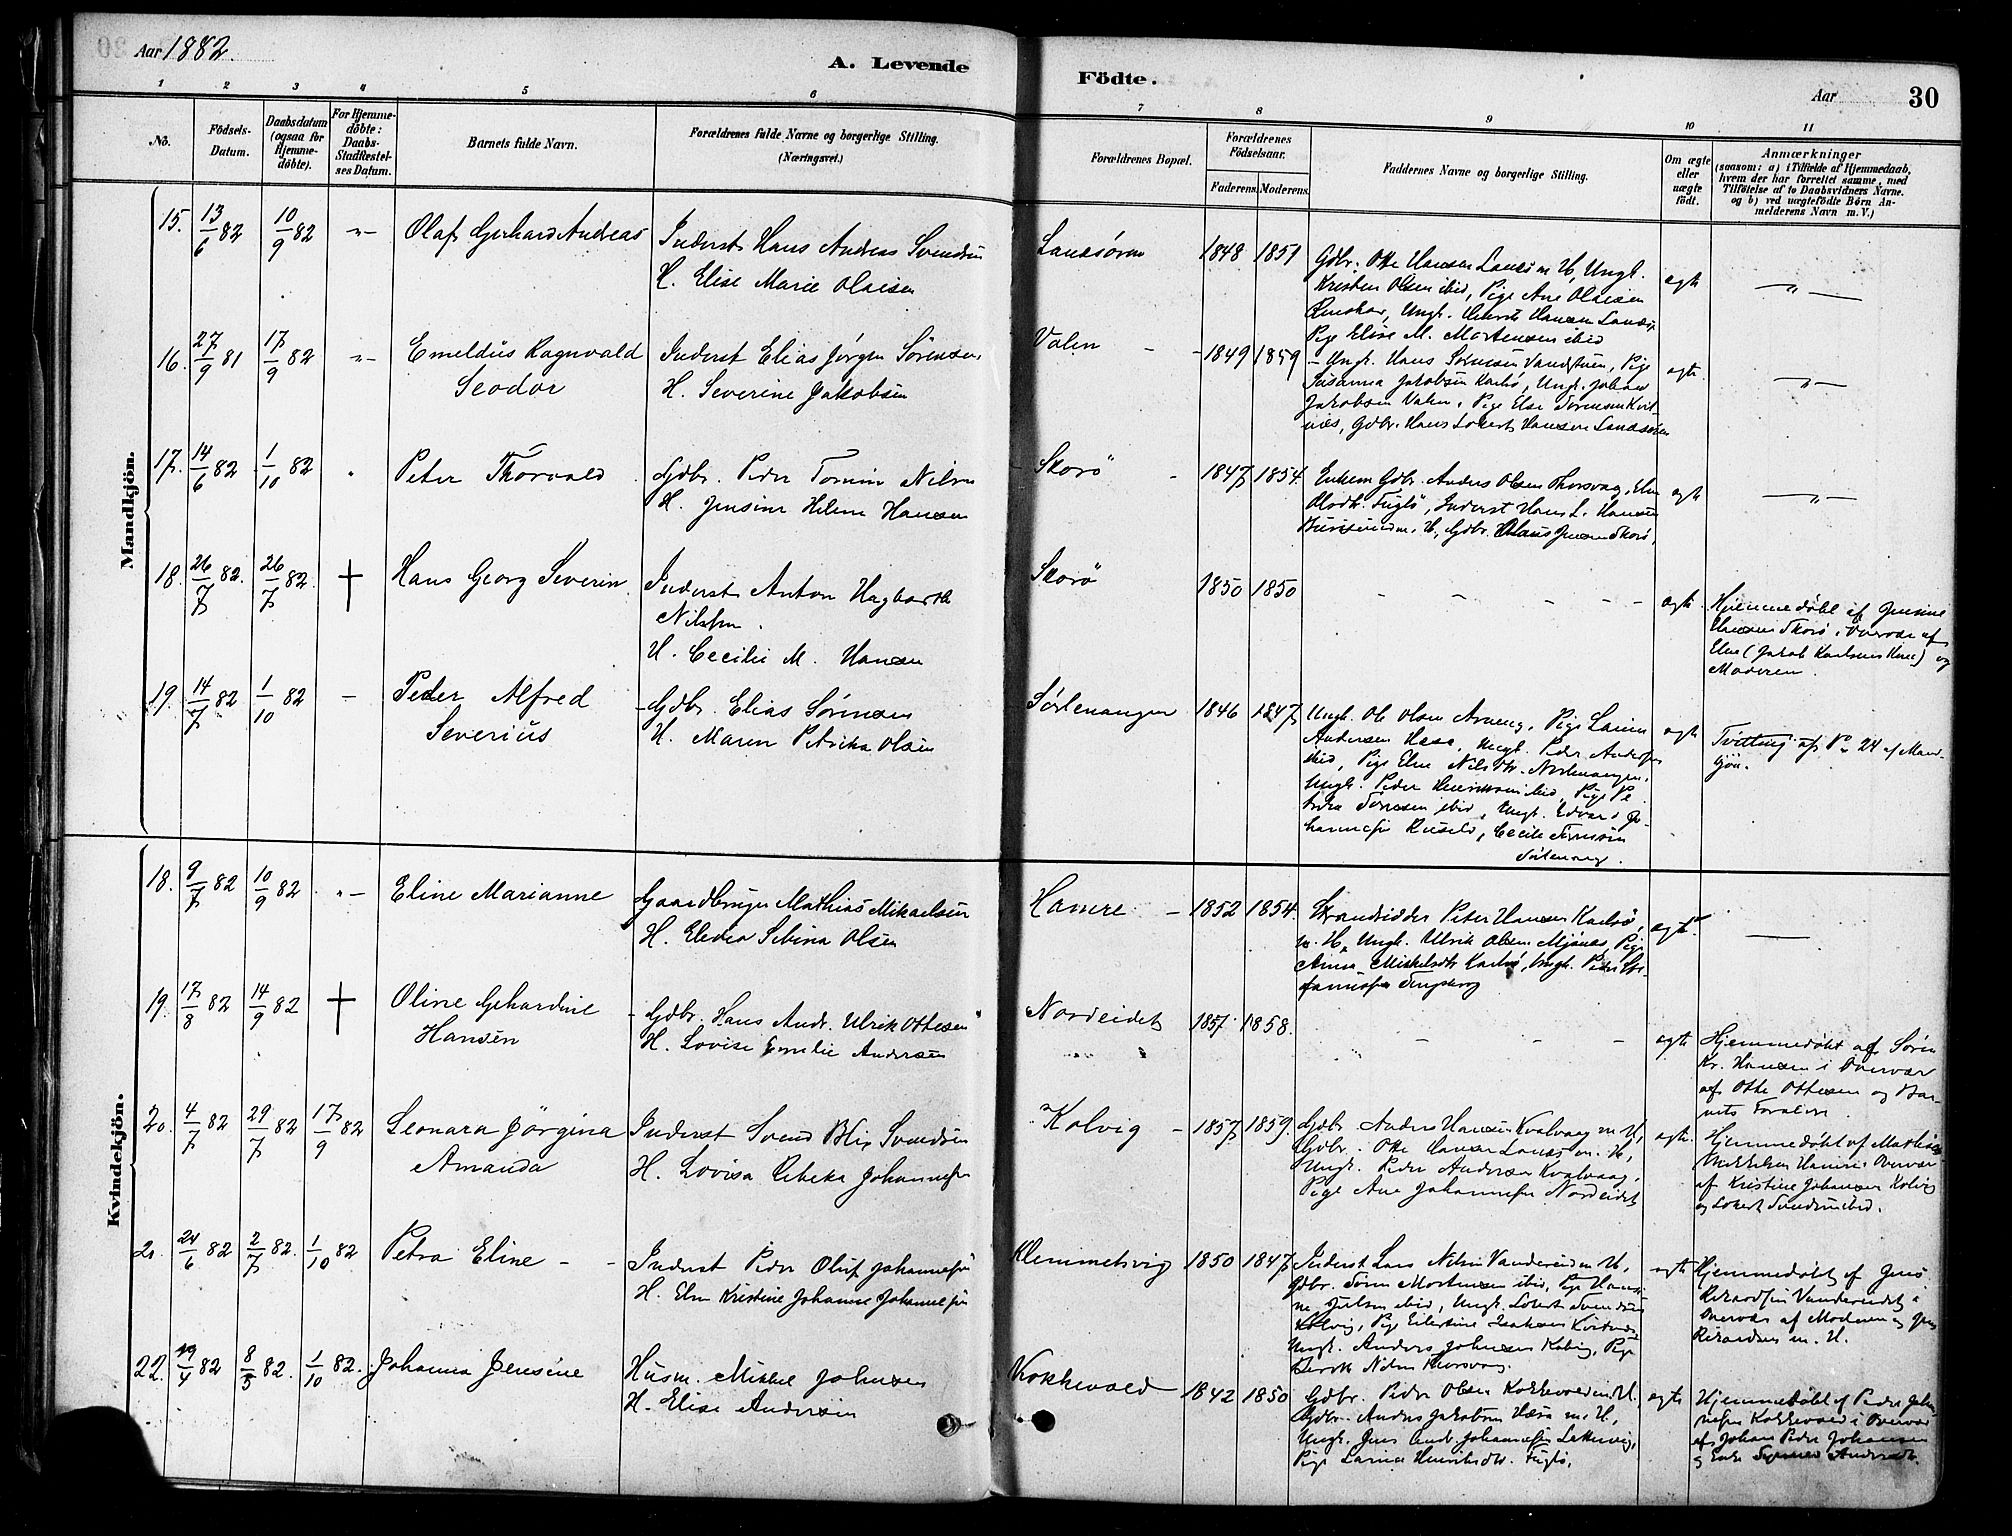 Aar 1882.
A. Levende
Födte.
Aar
30
1 2 3 4 5 6 7 8 9 10 11
No.
Födsels-Datum.
Daabsdatum (ogsaa for Hjemmedöbte).
For Hjemmedöbte: Daabs-Stadfæstelses Datum.
Barnets fulde Navn.
Forældrenes fulde Navne og borgerlige Stilling.
(Næringsvei.)
Forældrenes Bopæl.
Forældrenes Födselsaar.
Faderens. Moderens.
Faddernes Navne og borgerlige Stilling.
Om ægte eller uægte födt.
Anmærkninger
(saasom: a) i Tilfælde af Hjemmedaab,
hvem der har forrettet samme, med
Tilföielse af to Daabsvidners Navne.
og b) ved uægtefödte Börn An-
melderens Navn m. V.)
Mandkjön.
15. 13/6 82 10/9 82 -"- Olaf Gerhard Andreas
Inderst Hans Andreas Svendsen
H. Elise Marie Olaisen
1848 1851
Gdbr. Otte Hansen
Kristen Olsen ibid, Pige Ane Olaisen
Pige Elise M. Mortensen ibid
ægte -"-
16. 27/9 81 17/9 82 -"- Emeldus Ragnvald
Seodor
Inderst Elias Jørgen Sörensen
H. Severine Jakobsen
Valen - - 1849 1859
- Ungk. Hans Sörensen
Jakobsen Valen, Pige Else Sörensen Kvit-
næs, Gdbr. Hans Lokert Hansen
ægte -"-
17. 14/6 82 1/10 82 " Peter Thorvald
Gdbr. Peder Nilsen
H. Jensine Helene Hansen
Skorö - 1847 1854
Gdbr. Anders Olsen Thorsvaag,
Fuglö, Inderst Hans L. Hansen
m. H, Gdbr. Jensen Skorö,
ægte -"-
18. 26/7 82. 26/7 82. † Hans Georg Severin
Inderst Anton Hagbarth
Nilsen.
H. Cecilie M. Hansen
Skorö 1850 1850 - - - - -
ægte
Hjemmedöbt af Jensine
Hansen Skorö i Overvær af
Else (Jakob Karlsens Kone) og
Moderen.
19. 14/7 82 1/10 82 - Peder Alfred
Severius
Gdbr. Elias Sörensen
H. Maren Petrikke Olsen
Sörlenangen 1846 1847
Ungk. Ole Olsen
Andersen Ungk. Peder Andersen
ibid, Pige Else Nilsdtr. Nordenangen,
Ungk. Peder Henriksen ibid, Pige Pe-
Sörensen ibid, Ungk. Edvard Jo-
hannesen Cecilie Sörensen
ægte
Tvilling af No 24 af Mand-
kjön.
Kvindekjön.
18. 9/7 82 10/9 82 -"- Eline Marianne
Gaardbruger Mathias Mikaelsen
H. Elesea Sebina Olsen
Hamre - 1852 1854
Strandsidder Peter Hansen Karlsö,
m. H, Ungk. Ulrik Olsen Mjönes, Pige
Anna Mikkelsdtr Karlsö, Ungk. Peder
ægte —
19. 17/8 82 14/9 82 † Oline Gehardine
Hansen
Gdbr. Hans Andr. Ulrik Ottesen
H. Lovise Emilie Andersen
Nordeidet 1857 1858. - - - -
ægte
Hjemmedöbt af Sören
Kr. Hansen i Overvær
af Otte Ottesen og Bar-
nets Forældre.
20. 4/7 82 29/7 82 17/9 82 Leonara Jörgina
Amanda
Inderst Svend Blix Svendsen
H. Lovisa Rebeka Johannesen
Kolvig - 1857 1859.
Gdbr. Anders Hansen Kvalvaag m. H,
Gdbr. Otte Hansen m. H,
Ungk. Peder Andersen Kvalvaag,
Pige Ane Johannesen Nordeidet
ægte
Hjemmedöbt af Mathias
Mikkelsen Hamre i Overvær
af Kristine Johansen Kolvig
og Lokert Svendsen ibid.
21 24/6 82 2/7 82. 1/10 82 Petra Eline - -
Inderst Peder Oluf Johannesen
H. Elen Kristine Johanne Johannesen
Klemmetsvig 1850 1847
Inderst Lars Nilsen Vandereidet m. H,
Gdbr. Sören Mortensen ibid, Pige
ibid, Ungk. Lokert Svendsen
Kolvig, Pige Eilertine Isaksen
Ungk. Anders Johansen Kolvig, Pige
Nilsen Thorsvaag
ægte
Hjemmedöbt af Jens
Rikardsen Vandereidet i
Overvær af Moderen og Jens
Rikardsen m. H.
22. 19/4 82 8/5 82. 1/10 82. Johanna Jensine
Husm. Mikkel Johnsen
H. Elise Andersen
Kokkevold 1842 1850
Gdbr. Peder Olsen Kokkevold m. H.
Gdbr. Anders Jakobsen m. H,
Ungk. Jens Andr. Johannesen
Pige Henriksdtr. Fuglö,
ægte
Hjemmedöbt af Peder Johan-
nesen Kokkevold i Overvær
af Johan Peder Johansen
og Enke Andersdtr.